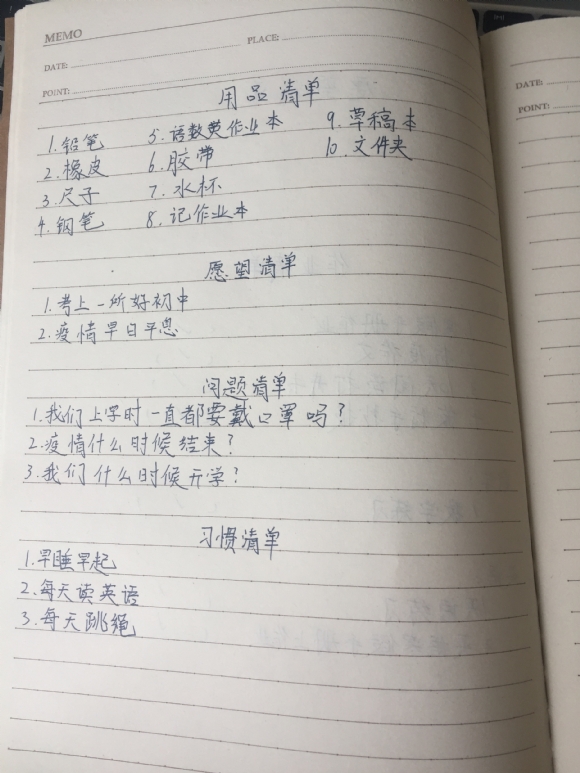 MEMO
DATE:
PLACE:
POINT:
用品清单
1.铅笔 5.语数英作业本 9.草稿本
2.橡皮 6.胶带 10.文件夹
3.尺子 7.水杯
4.钢笔 8.记作业本
愿望清单
1.考上一所好初中
2.疫情早日平息
问题清单
1.我们上学时一直都要戴口罩吗？
2.疫情什么时候结束？
3.我们什么时候开学？
习惯清单
1.早睡早起
2.每天读英语
3.每天跳绳
DATE:
POINT: